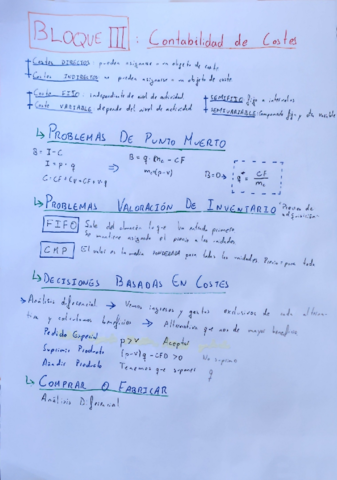 BLOQUE III : Contabilidad de Costes
Costes DIRECTOS: pueden asignarse a un objeto de coste
Costes INDIRECTOS: no pueden asignarse a un objeto de coste
Coste FIJO: independiente de nivel de actividad
SEMIFIJO: Fijo a intervalos
Coste VARIABLE: depende del nivel de actividad
SEMIVARIABLE: Componente fijo y otro variable
↳ PROBLEMAS DE PUNTO MUERTO
B = I - C
I = p · q
C = CF + CV = CF + v·q
⇒
B = q · mc - CF
B=0 → q* = CF / mc
↳ PROBLEMAS VALORACIÓN DE INVENTARIO
FIFO Sale del almacén lo que ha entrado primero
Se mantiene asignado el precio a las unidades
CMP El valor es la media PONDERADA para todas las unidades
↳ DECISIONES BASADAS EN COSTES
Análisis diferencial → Vemos ingresos y gastos exclusivos de cada alterna-
tiva y calculamos beneficios → Alternativa que nos de mayor beneficio
Pedido Especial p > v Aceptar
Suprimir Producto (p-v)q - CFD > 0 No suprimir
Añadir Producto Tenemos que superar
↳ COMPRAR O FABRICAR
Análisis Diferencial